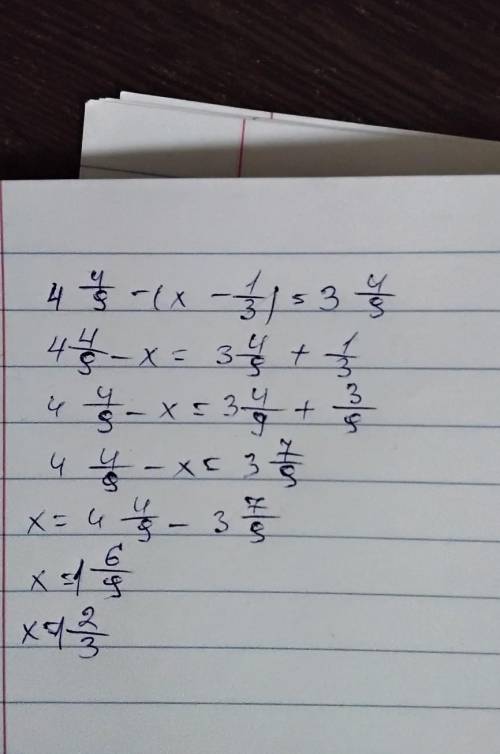 4 4/9 - (x - 1/3) = 3 4/9
4 4/9 - x = 3 4/9 + 1/3
4 4/9 - x = 3 4/9 + 3/9
4 4/9 - x = 3 7/9
x = 4 4/9 - 3 7/9
x = 1 6/9
x = 1 2/3